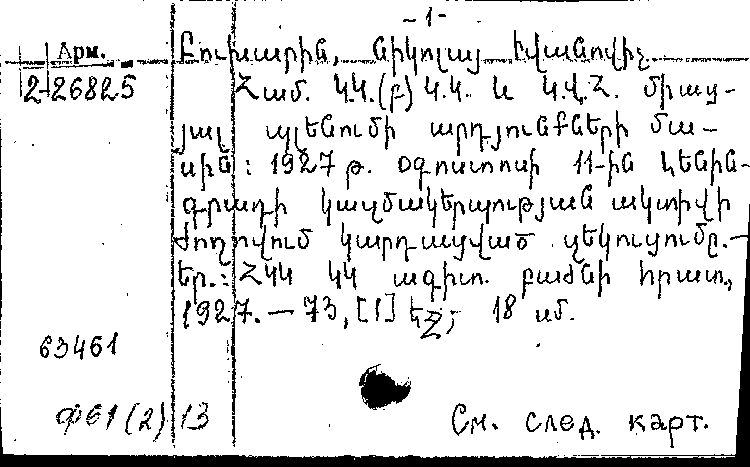 - 1 -
Арм. Բուխարին, Նիկոլայ Իվանովիչ.
2-26825 Համ. Կ.Կ.(բ) Կ.Կ. և Կ.Վ.Հ. միաց-
յալ պլենումի արդյունքների մա-
սին: 1927 թ. Օգոստոսի 11-ին Լենին-
գրադի կազմակերպության ակտիվի
ժողովում կարդացված զեկուցումը.—
Եր.: ՀԿԿ ԿԿ ագիտ. բաժնի հրատ.,
1927. — 73, [1] եջ; 18 սմ.
63461
Ф61(2)13 См. след. карт.